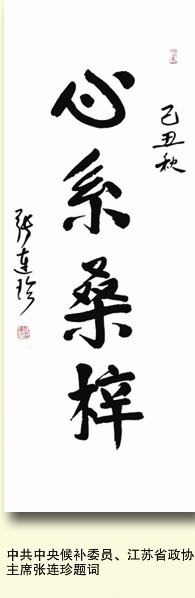 己丑秋
心系桑梓
张连珍
中共中央候补委员、江苏省政协
主席张连珍题词